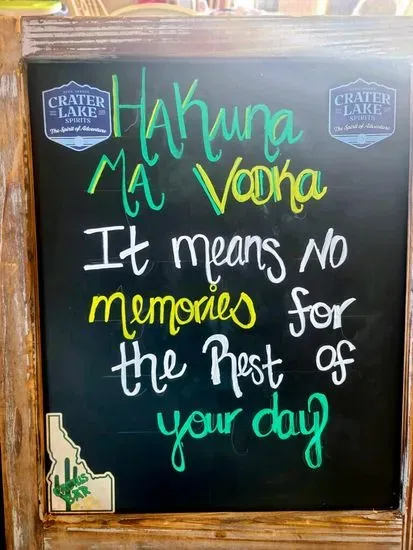 CRATER
LAKE
SPIRITS
The Spirit of Adventure
CRATER
LAKE
SPIRITS
The Spirit of Adventure
HAKuna
MA VodKa
It means NO
memories for
the Rest of
your day
BAR